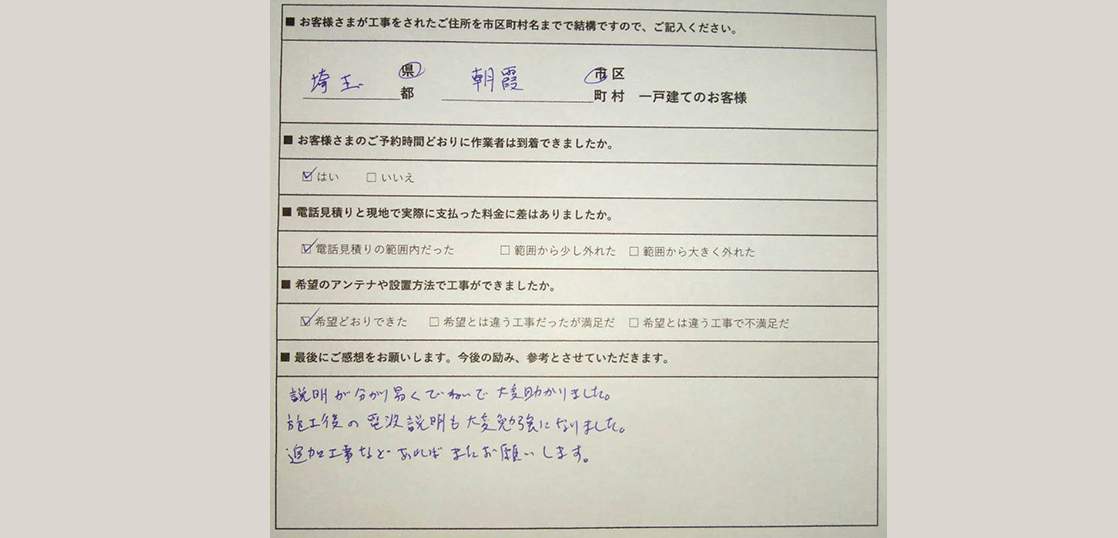 ■ お客様さまが工事をされたご住所を市区町村名までで結構ですので、ご記入ください。
埼玉 県 都 朝霞 市区 町村 一戸建てのお客様
■ お客様さまのご予約時間どおりに作業者は到着できましたか。
☑はい □いいえ
■ 電話見積りと現地で実際に支払った料金に差はありましたか。
☑電話見積りの範囲内だった □範囲から少し外れた □範囲から大きく外れた
■ 希望のアンテナや設置方法で工事ができましたか。
☑希望どおりできた □希望とは違う工事だったが満足だ □希望とは違う工事で不満足だ
■ 最後にご感想をお願いします。今後の励み、参考とさせていただきます。
説明が分かり易くていねいで大変助かりました。
施工後の電波説明も大変勉強になりました。
追加工事などあればまたお願いします。